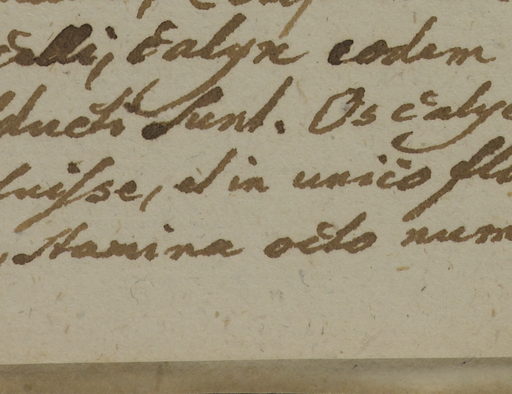 elli, Calyx eodem
ducti sunt. Os Caly
uisse, et in unico flo
, stamina octo num